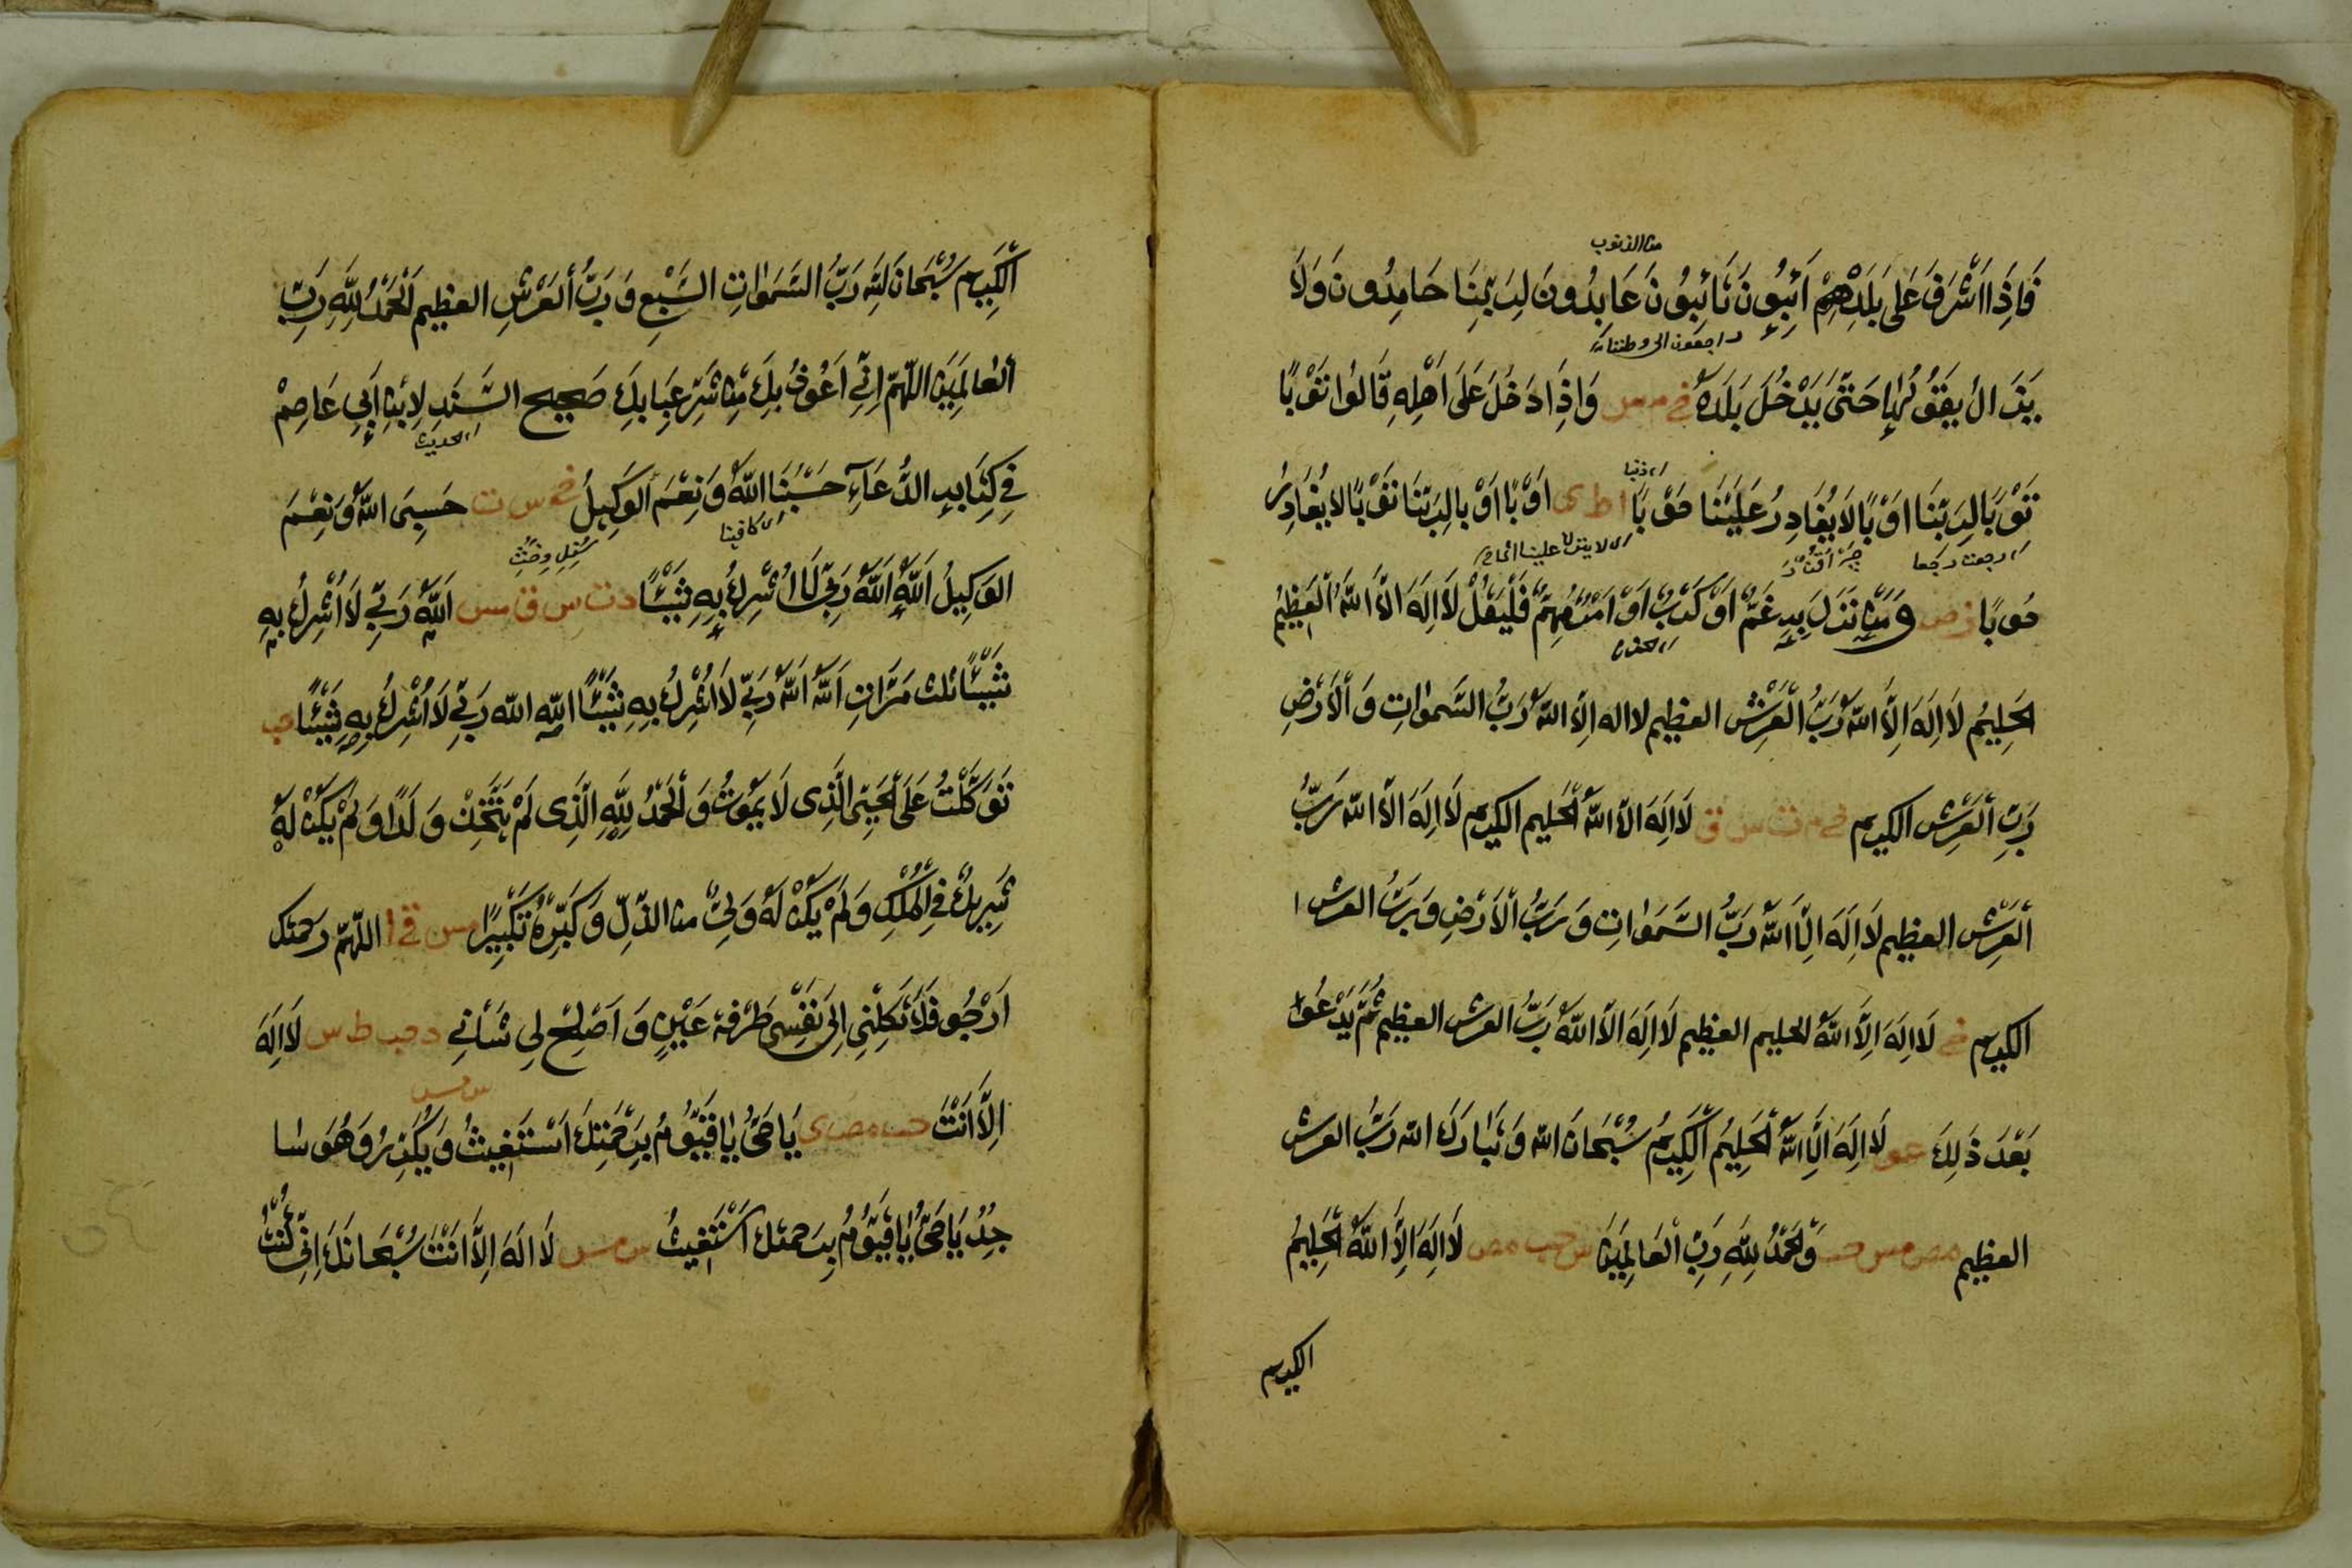 من الذنوب
فَاِذَا اَشْرَفَ عَلَى بَلَدِهِمْ اٰئِبُونَ تَائِبُونَ عَابِدُونَ لِرَبِّنَا حَامِدُونَ وَلَا
راجعون الى وطننا
يَزَالُ يَقُولُهَا حَتّٰى يَدْخُلَ بَلَدَهُ خ م س وَاِذَا دَخَلَ عَلَى اَهْلِهِ قَالُوا تَوْبًا
اى ذنبا
تَوْبًا لِرَبِّنَا اَوْبًا لَا يُغَادِرُ عَلَيْنَا حَوْبًا ا ط ى اَوْبًا اَوْبًا لِرَبِّنَا تَوْبًا لا يُغَادِرُ
اى رجعت رجعا
حُوبًا ر ص وَمَنْ نَزَلَ بِهِ غَمٌّ اَوْ كَرْبٌ اَوْ اَمْرٌ مُهِمٌّ فَلْيَقُلْ لَا اِلَهَ اِلَّا اللّٰهُ الْعَظِيمُ
الْحَلِيمُ لَا اِلَهَ اِلَّا اللّٰهُ رَبُّ الْعَرْشِ العظيم لا اله اِلَّا اللّٰهُ رَبُّ السَّمٰواتِ وَالْاَرْضِ
رَبِّ الْعَرْشِ الكريم خ م ت س ق لَا اِلَهَ اِلَّا اللّٰهُ الْحَليم الكريم لَا اِلَهَ اِلَّا اللّٰه رَبُّ
الْعَرْشِ العظيم لَا اِلَهَ اِلَّا اللّٰهُ رَبُّ السَّمَوٰاتِ وَرَبُّ الْاَرْضِ وَرَبُّ العرش ا
الكريم خ لَا اِلَهَ اِلَّا اللّٰهُ الحليم العظيم لَا اِلَهَ اِلَّا اللّٰهُ رَبُّ العرش العظيم ثُمَّ يَدْعُوا
بَعْدَ ذَلِكَ عو لَا اِلَهَ اِلَّا اللّٰهُ الْحَلِيْمُ الْكَرِيْمُ سُبْحَانَ اللّٰه وَتَبَارَكَ اللّٰه رَبُّ العرش
العظيم مص مس حب وَالْحَمْدُ لِلّٰهِ رَبِّ الْعَالَمِيْنَ س حب مص لَا اِلَهَ اِلَّا اللّٰهُ الْحَلِيمُ
الكريم
الْكَرِيم سُبْحَانَ اللّٰهِ رَبُّ السَّمَوٰاتِ السَّبْعِ وَرَبُّ الْعَرْشِ العظيم اَلْحَمْدُ لِلّٰهِ رَبِّ
الْعَالَمِيْنَ اللّٰهُمَّ اِنِّي اَعُوذُ بِكَ مِنْ شَرِّ عِبَابِكَ صَحِيح السَّنَدِ لِابْنِ اَبِي عَاصِمْ
الحديث
فِي كِتَابِهِ الدُّعَآءِ حَسْبُنَا اللّٰهُ وَنِعْمَ الْوَكِيلُ خ س ت حَسْبِىَ اللّٰهُ وَنِعْمَ
اى كافينا
الْوَكِيلُ اَللّٰهُ اَللّٰهُ رَبِّى لَا اُشْرِكُ بِهِ شَيْئًا د ت س ق مس اَللّٰهُ رَبِّي لَا اُشْرِكُ بِهِ
شَيْئًا ثلث مَرَّاتٍ اَللّٰهُ اَللّٰهُ رَبِّي لَا اُشْرِكُ بِهِ شَيْئًا اللّٰهُ اللّٰه رَبِّي لَا اُشْرِكُ بِهِ شَيْئًا حب
تَوَكَّلْتُ عَلَى الْحَيِّ الَّذِى لَا يَمُوْتُ وَالْحَمْدُ لِلّٰهِ الَّذِى لَمْ يَتَّخِذْ وَلَدًا وَلَمْ يَكُنْ لَهُ
شَرِيكٌ فِي الْمُلْكِ وَلَمْ يَكُنْ لَهُ وَلِيٌّ من الذُّلِّ وَكَبِّرْهُ تَكْبِيْرًا مس اللّٰهُمَّ رحمتك
اَرْجُو فَلَا تَكِلْنِي اِلَى نَفْسِى طَرْفَةَ عَيْنٍ وَاَصْلِحْ لِي شَأْنِي د حب ط س لَا اِلَهَ
س مس
اِلَّا اَنْتَ حب مص ى يَا حَيُّ يَا قَيُّوْمُ بِرَحْمَتِكَ اَسْتَغِيثُ وَيُكَرِّرُ وَهُوَ سا
جِدٌ يَا حَيُّ يَا قَيُّوْمُ بِرَحمتك اَسْتَغِيثُ س مس لَا اِلَهَ اِلَّا اَنْتَ سُبْحَانَكَ اِنِّي كُنْتُ